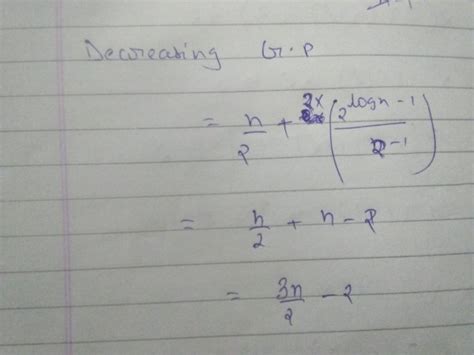 Decreasing G.P
= n/2 + 2x (2^(logn - 1) / 2-1)
= n/2 + n - 2
= 3n/2 - 2